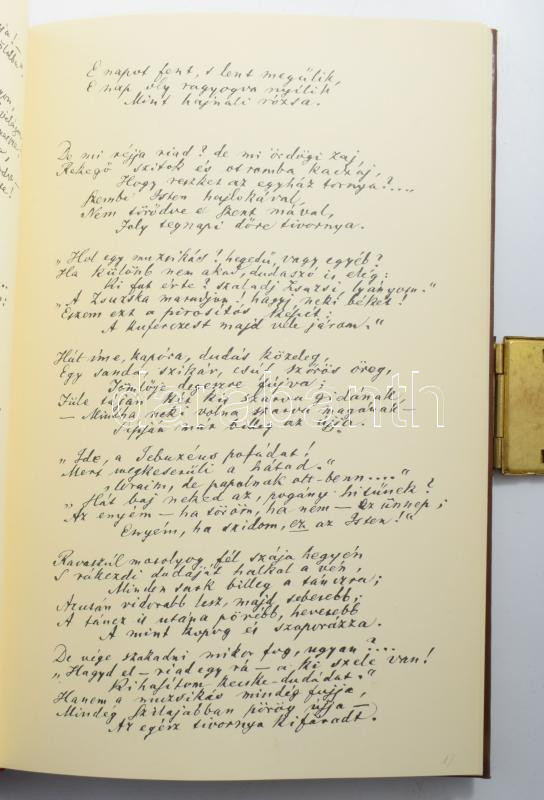 E napot fent, s lent megülik,
E nap oly ragyogva nyilik
Mint hajnali rózsa.
De mi réjja riad? de mi ördögi zaj,
Rekegő szitok és otromba kacaj,
Hogy reszket az egyház tornya?....
Szembe Isten hajlokával,
Nem törődve e szent mával,
Foly tegnapi dőre tivornya.
"Hol egy muzsikás? hegedű, vagy egyéb?
Ha különb nem akad, dudaszó is elég:
Ki fut érte? szaladj Zsuzsi lyányom."
"A Zsuzska maradjon! hagyj neki békét!
Eszem ezt a pirosítós képit:
A kuferczest majd vele járom."
Hát íme, kapóra, dudás közeleg,
Egy sanda, szikár, csúf, szőrös öreg,
Tömlője degeszre fújva;
Füle táján két kis szarva gidának,
– Mintha neki volna szarva magának –
Sípján már billeg az ujja.
"Ide, a Jebuzéus pofádat!
Mert megkeserüli a hátad."
"Uraim, de papolnak ott-benn...."
"Hát baj neked az, pogány hitünek?
Az enyém – ha töröm, ha nem – ez ünnep;
Enyém, ha szidom, ez az Isten!"
Ravaszúl mosolyog fél szája hegyén
S rákezdi dudáját halkal a vén,
Minden sark billeg a tánczra;
Azután vidorabb lesz, majd sebesebb;
A táncz is utána pörébb, hevesebb
A mint kopog és szaporázza.
De vége szakadni mikor fog, ugyan?...
"Hagyd el – riad egy rá – a ki szele van!
Kihasítom kecske-dudádat."
Hanem a muzsikás mindég fujja,
Mindég szilajabban pörög ujja –
Az egész tivornya kifáradt.
darabanth